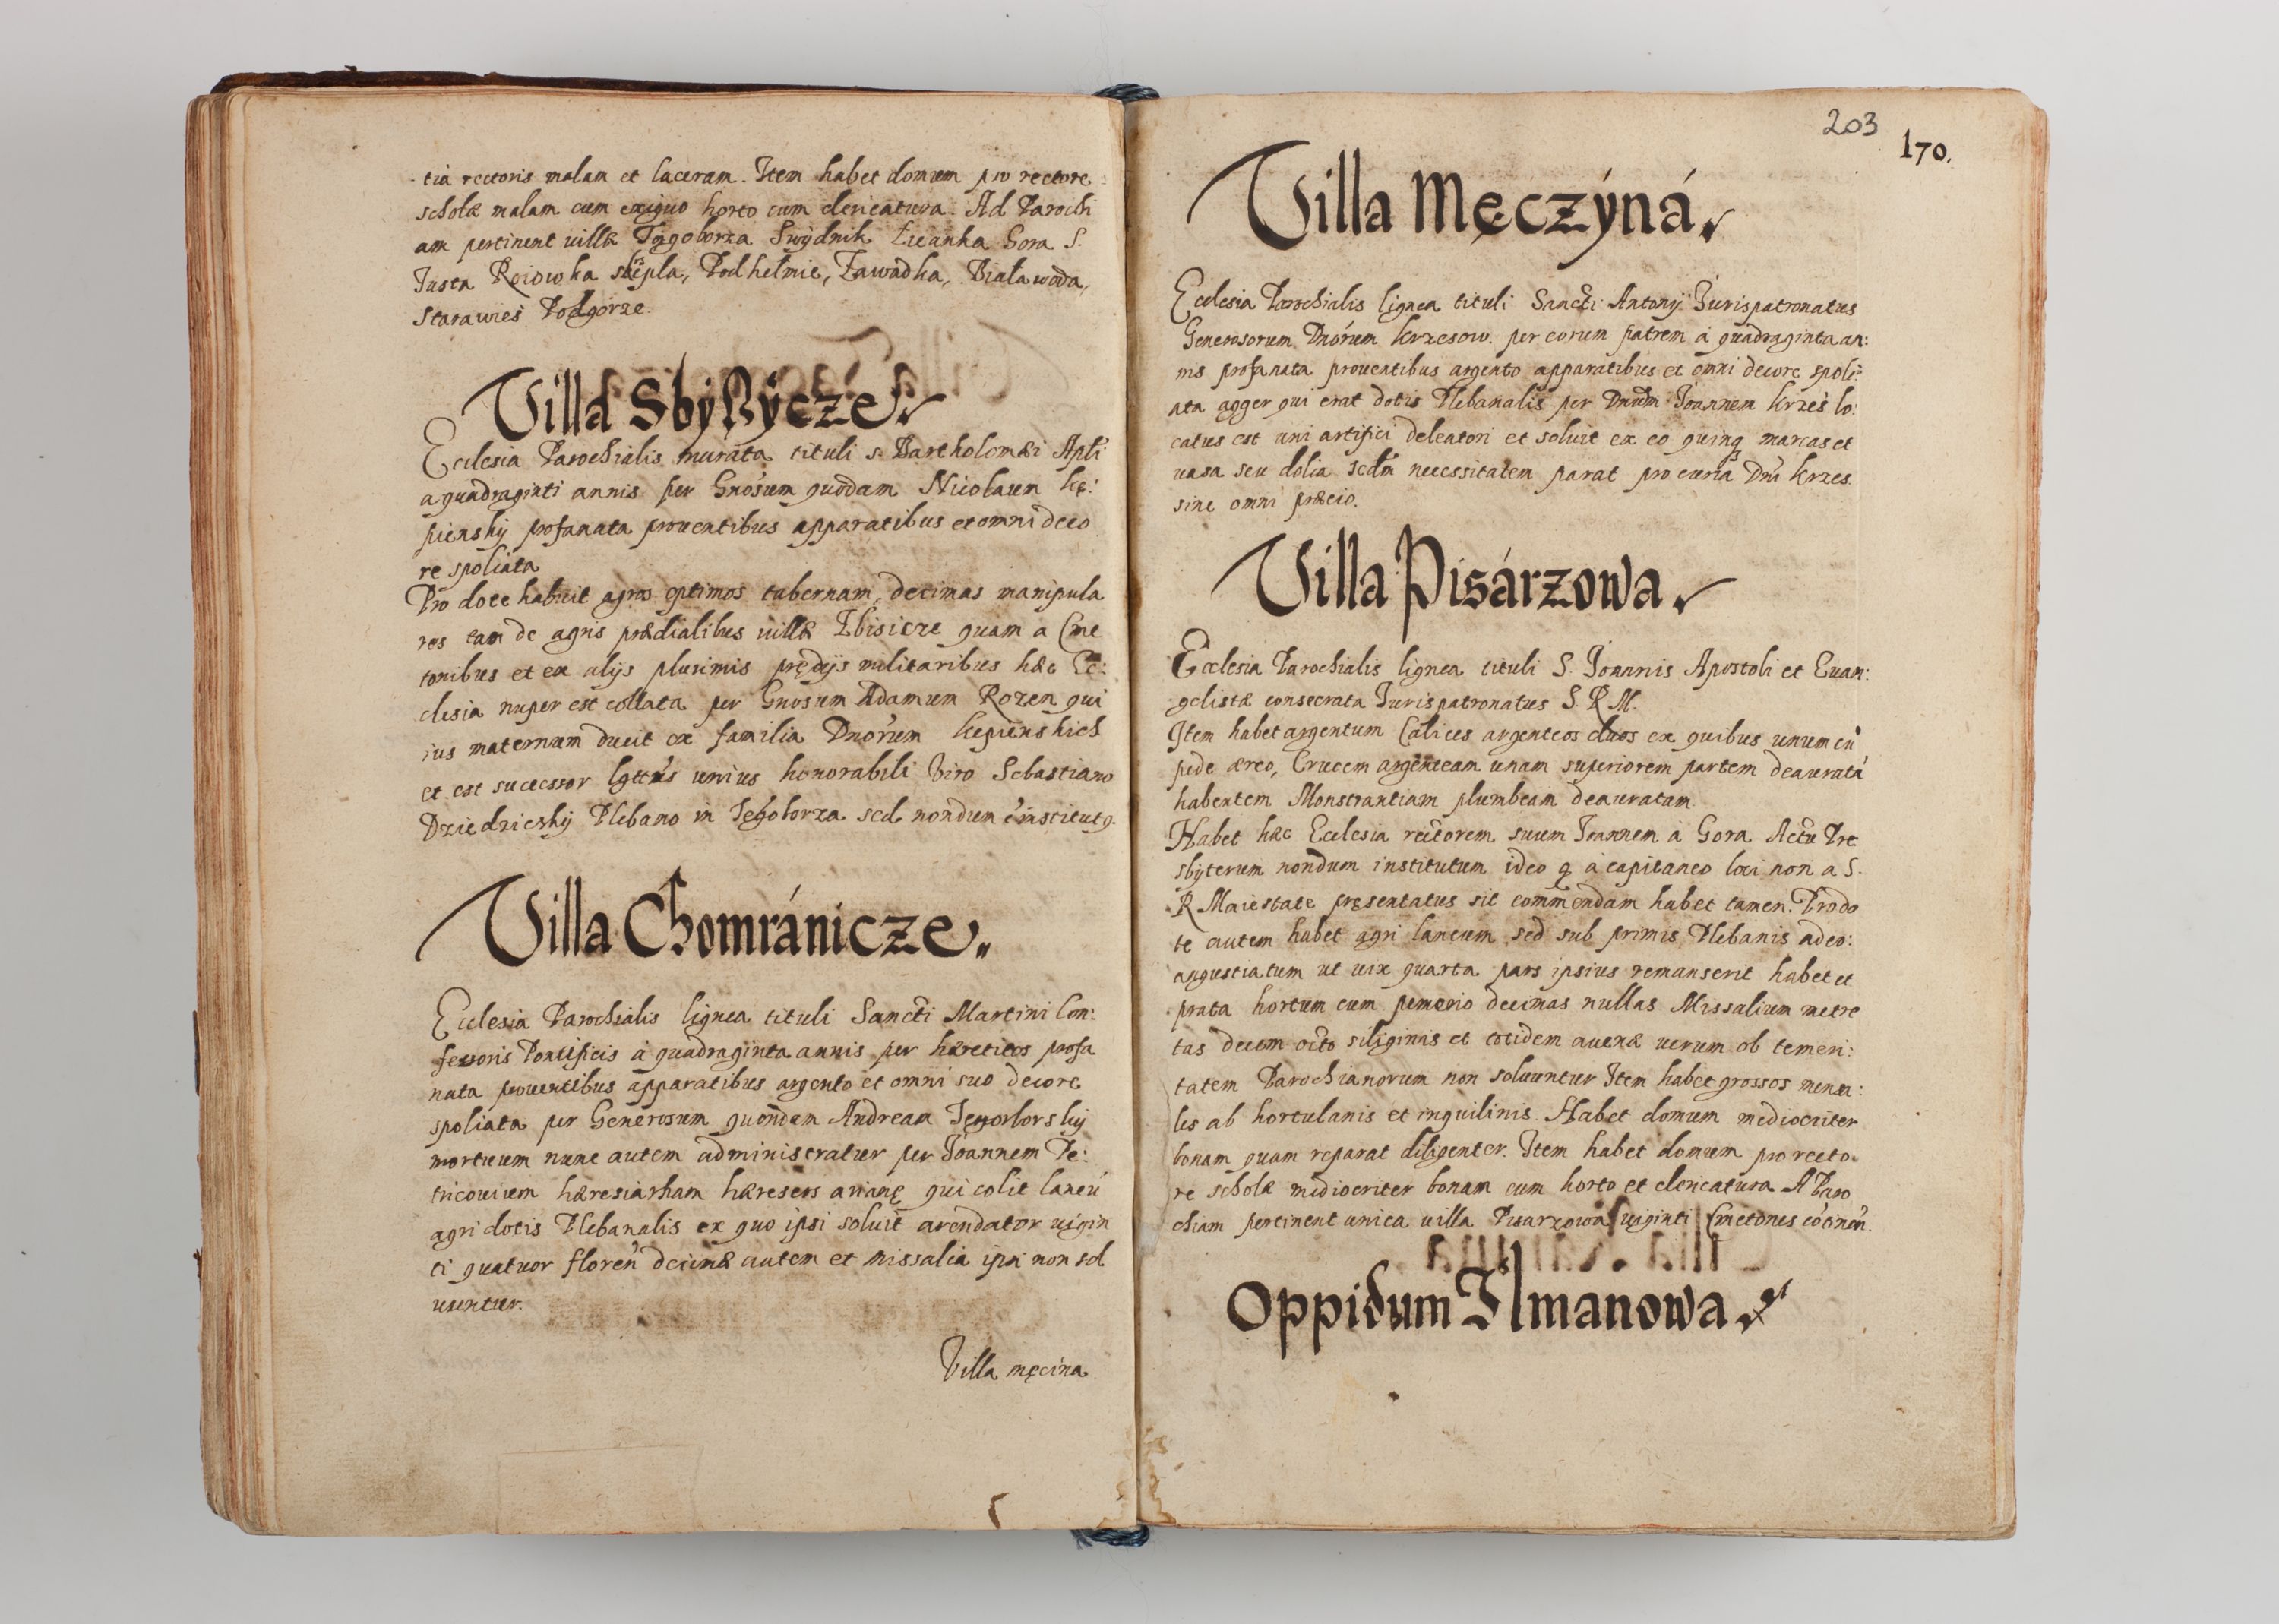 tia rectoris malam et laceram. Item habet domum pro rectore
scholæ malam cum exiguo horto cum clericatura. Ad Parochi
am pertinent villæ Tęgoborza Swydnik Zwanka Gora S.
Justa Roiowka Podhełmie, Zawadka, Białawoda,
Starawies Podgorze.
Villa Sbyßycze
Ecclesia Parochialis murata tituli S. Bartholomæi Apli
a quadraginti annis per Gnosum quodam Nicolaum Kę:
pienskÿ profanata prouentibus apparatibus et omni deco
re spoliata
Pro dote habuit agros optimos tabernam, decimas manipula
res tam de agris prædialibus uillæ Zbisicze quam a Cme
tonibus et ex alijs plurimis prędijs militaribus hæc Ec:
clesia nuper est collata per Gnosum Adamum Rozen qui
ius maternum ducit ex familia Dnorum Kępienskich
et est sucessor unius honorabili Viro Sebastiano
Dziedziczkÿ Plebano in Tęgoborza sed nondum ē institutꝰ
Villa Chomránicze
Ecclesia Parochialis lignea tituli Sancti Martini Con:
fessoris Pontificis a quadraginta annis per hæreticos profa
nata prouentibus apparatibus argento et omni suo decore
spoliata per Generosum quondam Andream
mortuum nunc autem administratur per Joannem Pe:
tricouium hæresiarham hæreseos arianę qui colit laneū
agri dotis Plebanalis ex quo ipsi soluit arendator uigin
ti quatuor floreń decimæ autem et missalia ipsi non sol
uuntur.
Villa męcina
203
170.
Villa Męczýná
Ecclesia Parochialis lignea tituli Sancti Antonij Jurispatronatus
Generosorum Dnórum Krzesow. per eorum patrem a quadraginta an:
nis profanata prouentibus argento apparatibus et omni decore spoli:
ata agger qui erat dotis Plebanalis per Dnum Joannem Krzes lo:
catus est uni artifici doleatori et soluit ex eo quinqꝫ marcas et
uasa seu dolia scdm necessitatem parat pro curia Dni Krzes.
sine omni præcio.
Villa Pisárzowa
Ecclesia Parochialis lignea tituli S. Joannis Apostoli et Euan:
gelistæ consecrata Jurispatronatus S. R M.
Item habet argentum Calices argenteos duos ex quibus unum cū
pede æreo, Crucem argenteam unam superiorem partem deauratā
habentem Monstrantiam plumbeam deauratam.
Habet hæc Ecclesia rectorem suum Joannem a Gora Actu Pre
sbyterum nondum institutum ideo q̨ a capitaneo loci non a S.
R Maiestate pręsentatus sit commendam habet tamen. Pro do
te autem habet agri laneum sed sub primis Plebanis adeo:
angustiatum ut uix quarta pars ipsius remanserit habet et
prata hortum cum pomerio decimas nullas Missalium metre
tas decem octo siliginis et totidem auenæ uerum ob temeri:
tatem Parochianorum non soluuntur Item habet grossos mensa:
les ab hortulanis et inquilinis. Habet domum mediocriter
bonam quam reparat diligenter. Item habet domum pro recto
re scholæ mediocriter bonam cum horto et clericatura A Paro
chiam pertinent unica uilla Pisarzowa uiginti Cmetones cōtinēn.
Oppidum Ilmanowa